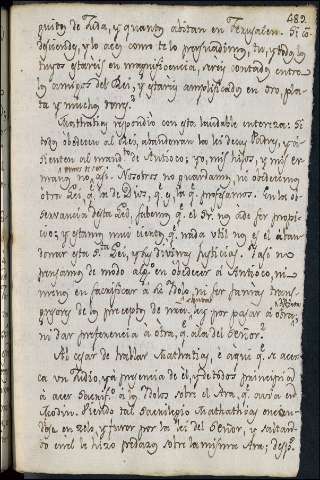 489.
quitas de Juda, y quantos abitan en Jerusalen. Si co
desciendes, y lo aces como te lo persuadimos, tu, y todos los
tuyos estareis en magnificencia, sereis contados entre
los amigos del Rei, y estareis amplificado en oro, pla
ta y muchos dones?
Mathatias respondio con esta laudable entereza: Si
todos obedecen al Rei, abandonan la lei de sus Padres, y
sienten al mand. de Antioco; yo, mis hijos, y mis er
manos no, así. Nosotros no guardamos, ni obedecemos
otra Lei, q. la de Dios, q. es la q. profesamos. En la ob
servancia desta Lei, sabemos q. el Sr. nos ade ser propi
cio; y estamos mui ciertos, q. nada util nos es el aban
donar esta Sta Lei, y sus divinas justicias. Y así no
pensamos de modo algo en obedecer a Antioco, ni
menos en sacrificar á sus Idolos, ni ser para trans
gresores de los preceptos de nra. lei, por pasar á otra,
ni dar preferencia á otra, q. ala del Señor.
Al cesar de hablar Mathatias, é aqui q. se acer
ca un Judio, y á presencia de el, y de todos principia
á acer Sacrifs. á los Idolos sobre el Ara, q. avia en
Modin. Viendo tal Sacrilegio Mathathias encien
dese en zelo, y furor por la lei del Señor, y saltan
do en el le hizo pedazos sobre la misma Ara; despo.